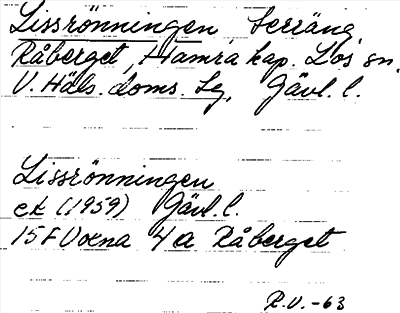 Lissrönningen, terräng,
Råberget, Hamra kap. Los sn.
V. Häls. doms. sg, Gävl. l.
Lissrönningen
ek (1959) Gävl. l.
15F Voxna 4 a Råberget
R.V.-63